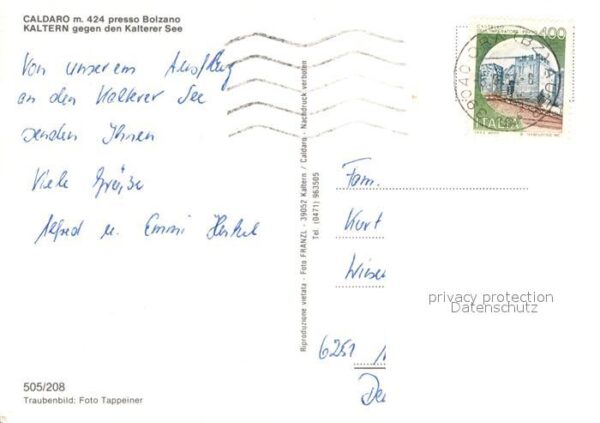 CALDARO m. 424 presso Bolzano
KALTERN gegen den Kalterer See
Von unserem Ausflug
an den Kalterer See
senden Ihnen
Viele Grüße
Alfred u. Emmi Henkel
505/208
Traubenbild: Foto Tappeiner
Riproduzione vietata - Foto FRANZL - 39052 Kaltern / Caldaro - Nachdruck verboten
Tel. (0471) 963505
400
ITALIA
Fam.
Kurt
Wiesen
privacy protection
Datenschutz
6251